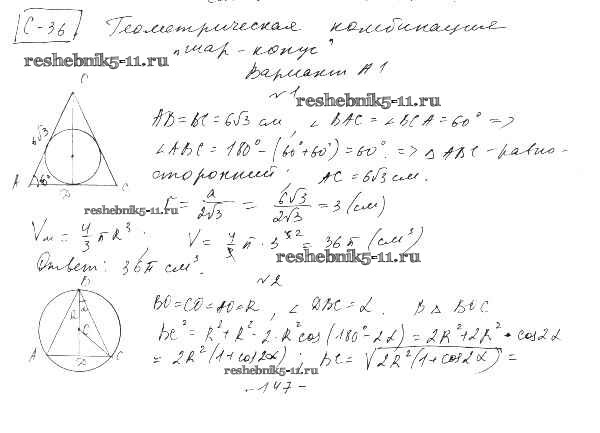 С-36 Геометрическая комбинация
"шар-конус"
reshebnik5-11.ru
Вариант А1
№1
reshebnik5-11.ru
AB=BC=6√3 см, ∠BAC=∠BCA=60° =>
∠ABC=180°-(60°+60°)=60°. => △ABC-равно-
сторонний; AC=6√3 см.
6√3
A 60° D C
r = a/2√3 = 6√3/2√3 = 3 (см)
reshebnik5-11.ru
Vш = 4/3 πR³; V = 4/3 π·3³ = 36π (см³)
Ответ: 36π см³.
reshebnik5-11.ru
№2
B
BO=CO=AO=R, ∠DBC=α. В △BOC
BC²=R²+R²-2·R²cos(180°-2α)=2R²+2R²·cos2α
=2R²(1+cos2α); BC=√2R²(1+cos2α) =
A D C
reshebnik5-11.ru
-147-